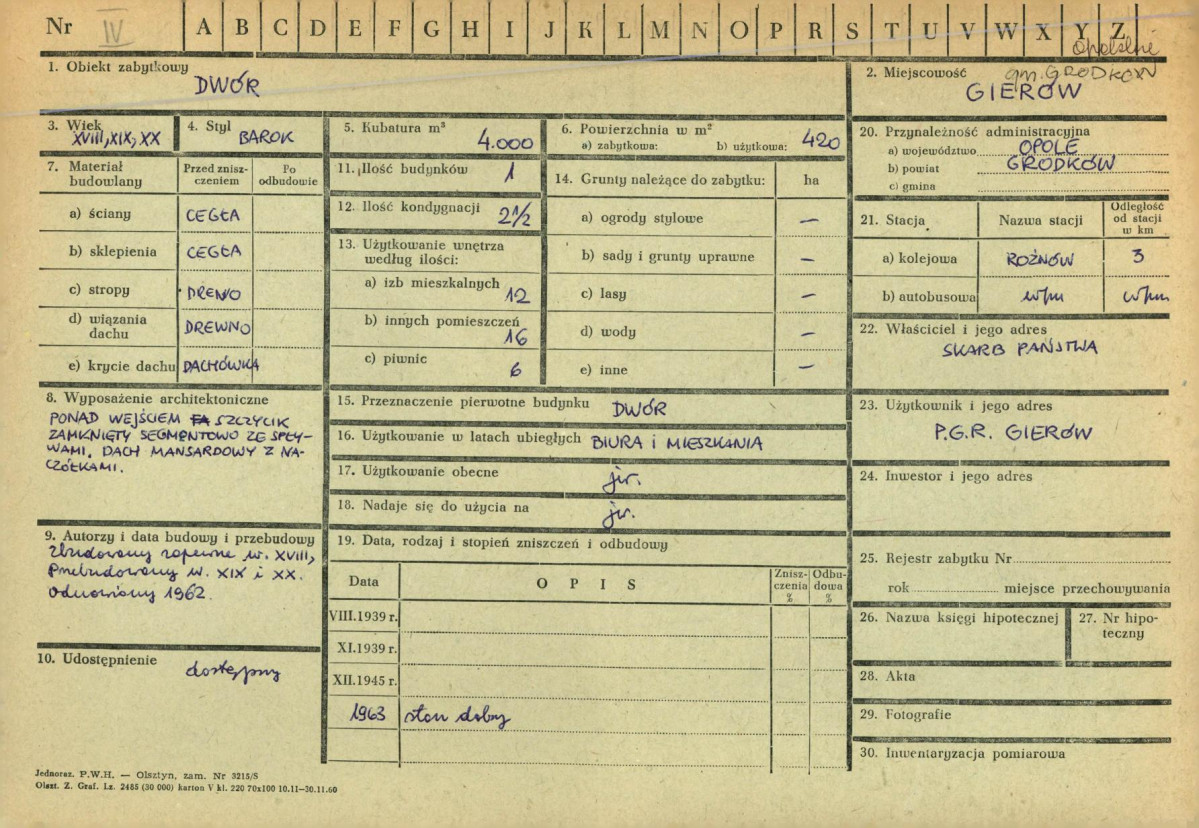 Nr IV A B C D E F G H I J K L M N O P R S T U V W X Y Z
opolskie
1. Obiekt zabytkowy
DWÓR
2. Miejscowość gm. GRODKÓW
GIERÓW
3. Wiek
XVIII, XIX, XX
4. Styl
BAROK
5. Kubatura m³
4.000
6. Powierzchnia w m²
a) zabytkowa: b) użytkowa: 420
7. Materiał budowlany
Przed znisz-
czeniem
Po
odbudowie
a) ściany CEGŁA
b) sklepienia CEGŁA
c) stropy DREWNO
d) wiązania
dachu DREWNO
e) krycie dachu DACHÓWKA
8. Wyposażenie architektoniczne
PONAD WEJŚCIEM SZCZYCIK
ZAMKNIĘTY SEGMENTOWO ZE SPŁY-
WAMI. DACH MANSARDOWY Z NA-
CZÓŁKAMI.
9. Autorzy i data budowy i przebudowy
Zbudowany zapewne w. XVIII,
Przebudowany w. XIX i XX.
Odnowiony 1962.
10. Udostępnienie
dostępny
11. Ilość budynków 1
12. Ilość kondygnacji 2½
13. Użytkowanie wnętrza
według ilości:
a) izb mieszkalnych
12
b) innych pomieszczeń
16
c) piwnic 6
14. Grunty należące do zabytku: ha
a) ogrody stylowe —
b) sady i grunty uprawne —
c) lasy —
d) wody —
e) inne —
15. Przeznaczenie pierwotne budynku DWÓR
16. Użytkowanie w latach ubiegłych BIURA i MIESZKANIA
17. Użytkowanie obecne jw.
18. Nadaje się do użycia na jw.
19. Data, rodzaj i stopień zniszczeń i odbudowy
Data
O P I S
Znisz-
czenia
%
Odbu-
dowa
%
VIII.1939 r.
XI.1939 r.
XII.1945 r.
1963 stan dobry
20. Przynależność administracyjna
a) województwo OPOLE
b) powiat GRODKÓW
c) gmina
21. Stacja
Nazwa stacji
Odległość
od stacji
w km
a) kolejowa ROŻNÓW 3
b) autobusowa w/m w/m
22. Właściciel i jego adres
SKARB PAŃSTWA
23. Użytkownik i jego adres
P.G.R. GIERÓW
24. Inwestor i jego adres
25. Rejestr zabytku Nr
rok miejsce przechowywania
26. Nazwa księgi hipotecznej
27. Nr hipo-
teczny
28. Akta
29. Fotografie
30. Inwentaryzacja pomiarowa
Jednoraz. P.W.H. — Olsztyn, zam. Nr 3215/S
Olszt. Z. Graf. Lz. 2485 (30 000) karton V kl. 220 70x100 10.11—30.11.60